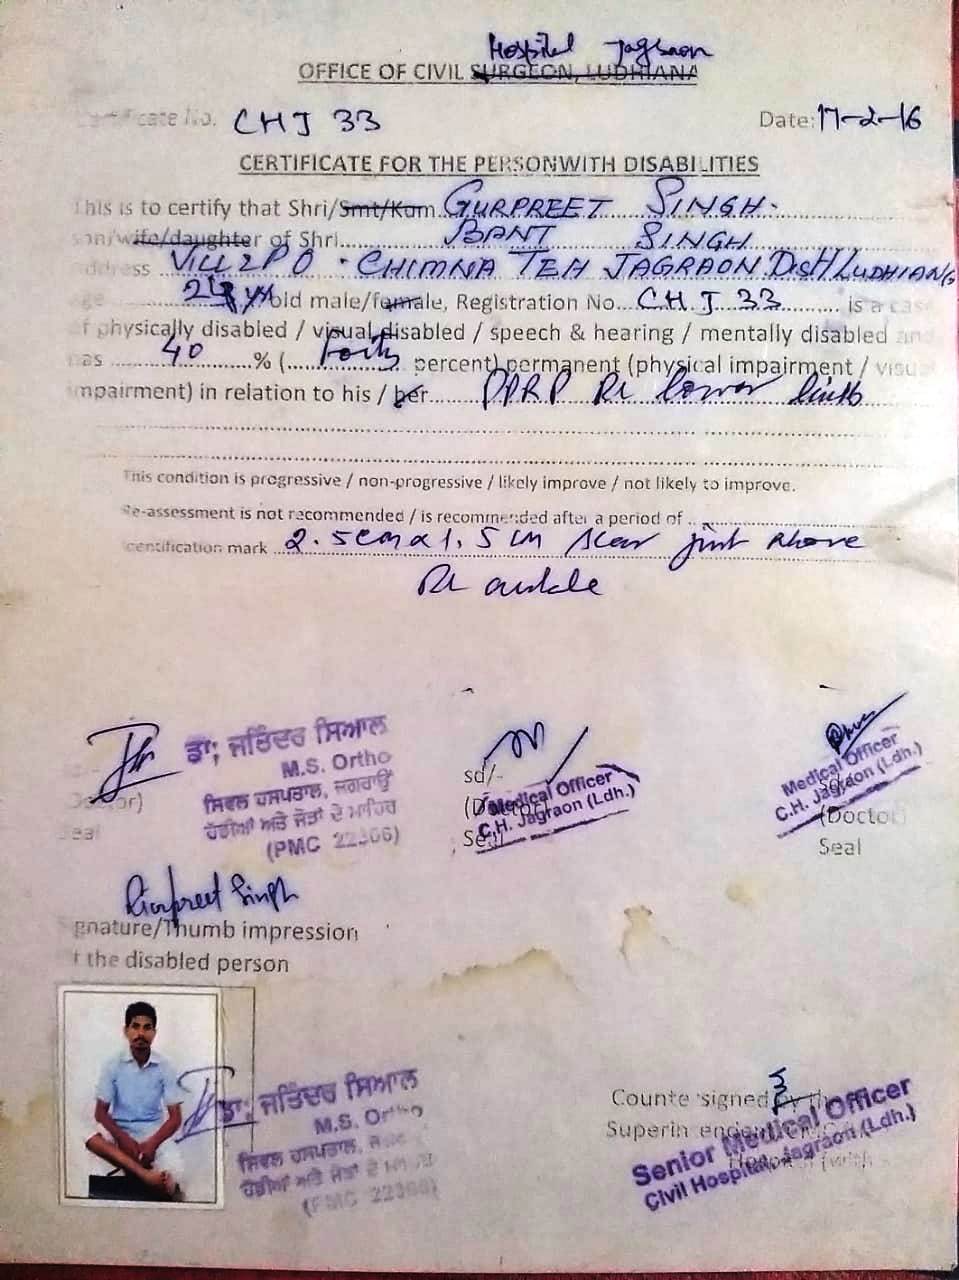 Hospital Jagraon
OFFICE OF CIVIL SURGEON, LUDHIANA
Certificate No. CHJ 33 Date: 17-2-16
CERTIFICATE FOR THE PERSONWITH DISABILITIES
This is to certify that Shri/Smt/Kum. GURPREET SINGH.
son/wife/daughter of Shri BANT SINGH
address VILL & PO. CHIMNA TEH JAGRAON Distt LUDHIANA
age yrs old male/female, Registration No. CHJ 33 is a case
of physically disabled / visual disabled / speech & hearing / mentally disabled and
has 40 % ( Forty percent) permanent (physical impairment / visual
impairment) in relation to his / her PPRP Rt lower limb
This condition is progressive / non-progressive / likely improve / not likely to improve.
Re-assessment is not recommended / is recommended after a period of
identification mark 2.5cm x 1.5 cm scar just above
Rt ankle
ਡਾ; ਜਤਿੰਦਰ ਸਿਆਲ
M.S. Ortho
ਸਿਵਲ ਹਸਪਤਾਲ, ਜਗਰਾਉਂ
ਹੱਡੀਆਂ ਅਤੇ ਜੋੜਾਂ ਦੇ ਮਾਹਿਰ
(PMC 22366)
Seal
sd/-
(Doctor)
Seal
Medical Officer
C.H. Jagraon (Ldh.)
Medical Officer
C.H. Jagraon (Ldh.)
(Doctor)
Seal
Gurpreet Singh
Signature/Thumb impression
of the disabled person
ਡਾ; ਜਤਿੰਦਰ ਸਿਆਲ
M.S. Ortho
ਸਿਵਲ ਹਸਪਤਾਲ,
ਹੱਡੀਆਂ ਅਤੇ ਜੋੜਾਂ ਦੇ
(PMC 22366)
Counter signed by the
Superintendent
Hospital (with
Senior Medical Officer
Civil Hospital Jagraon (Ldh.)